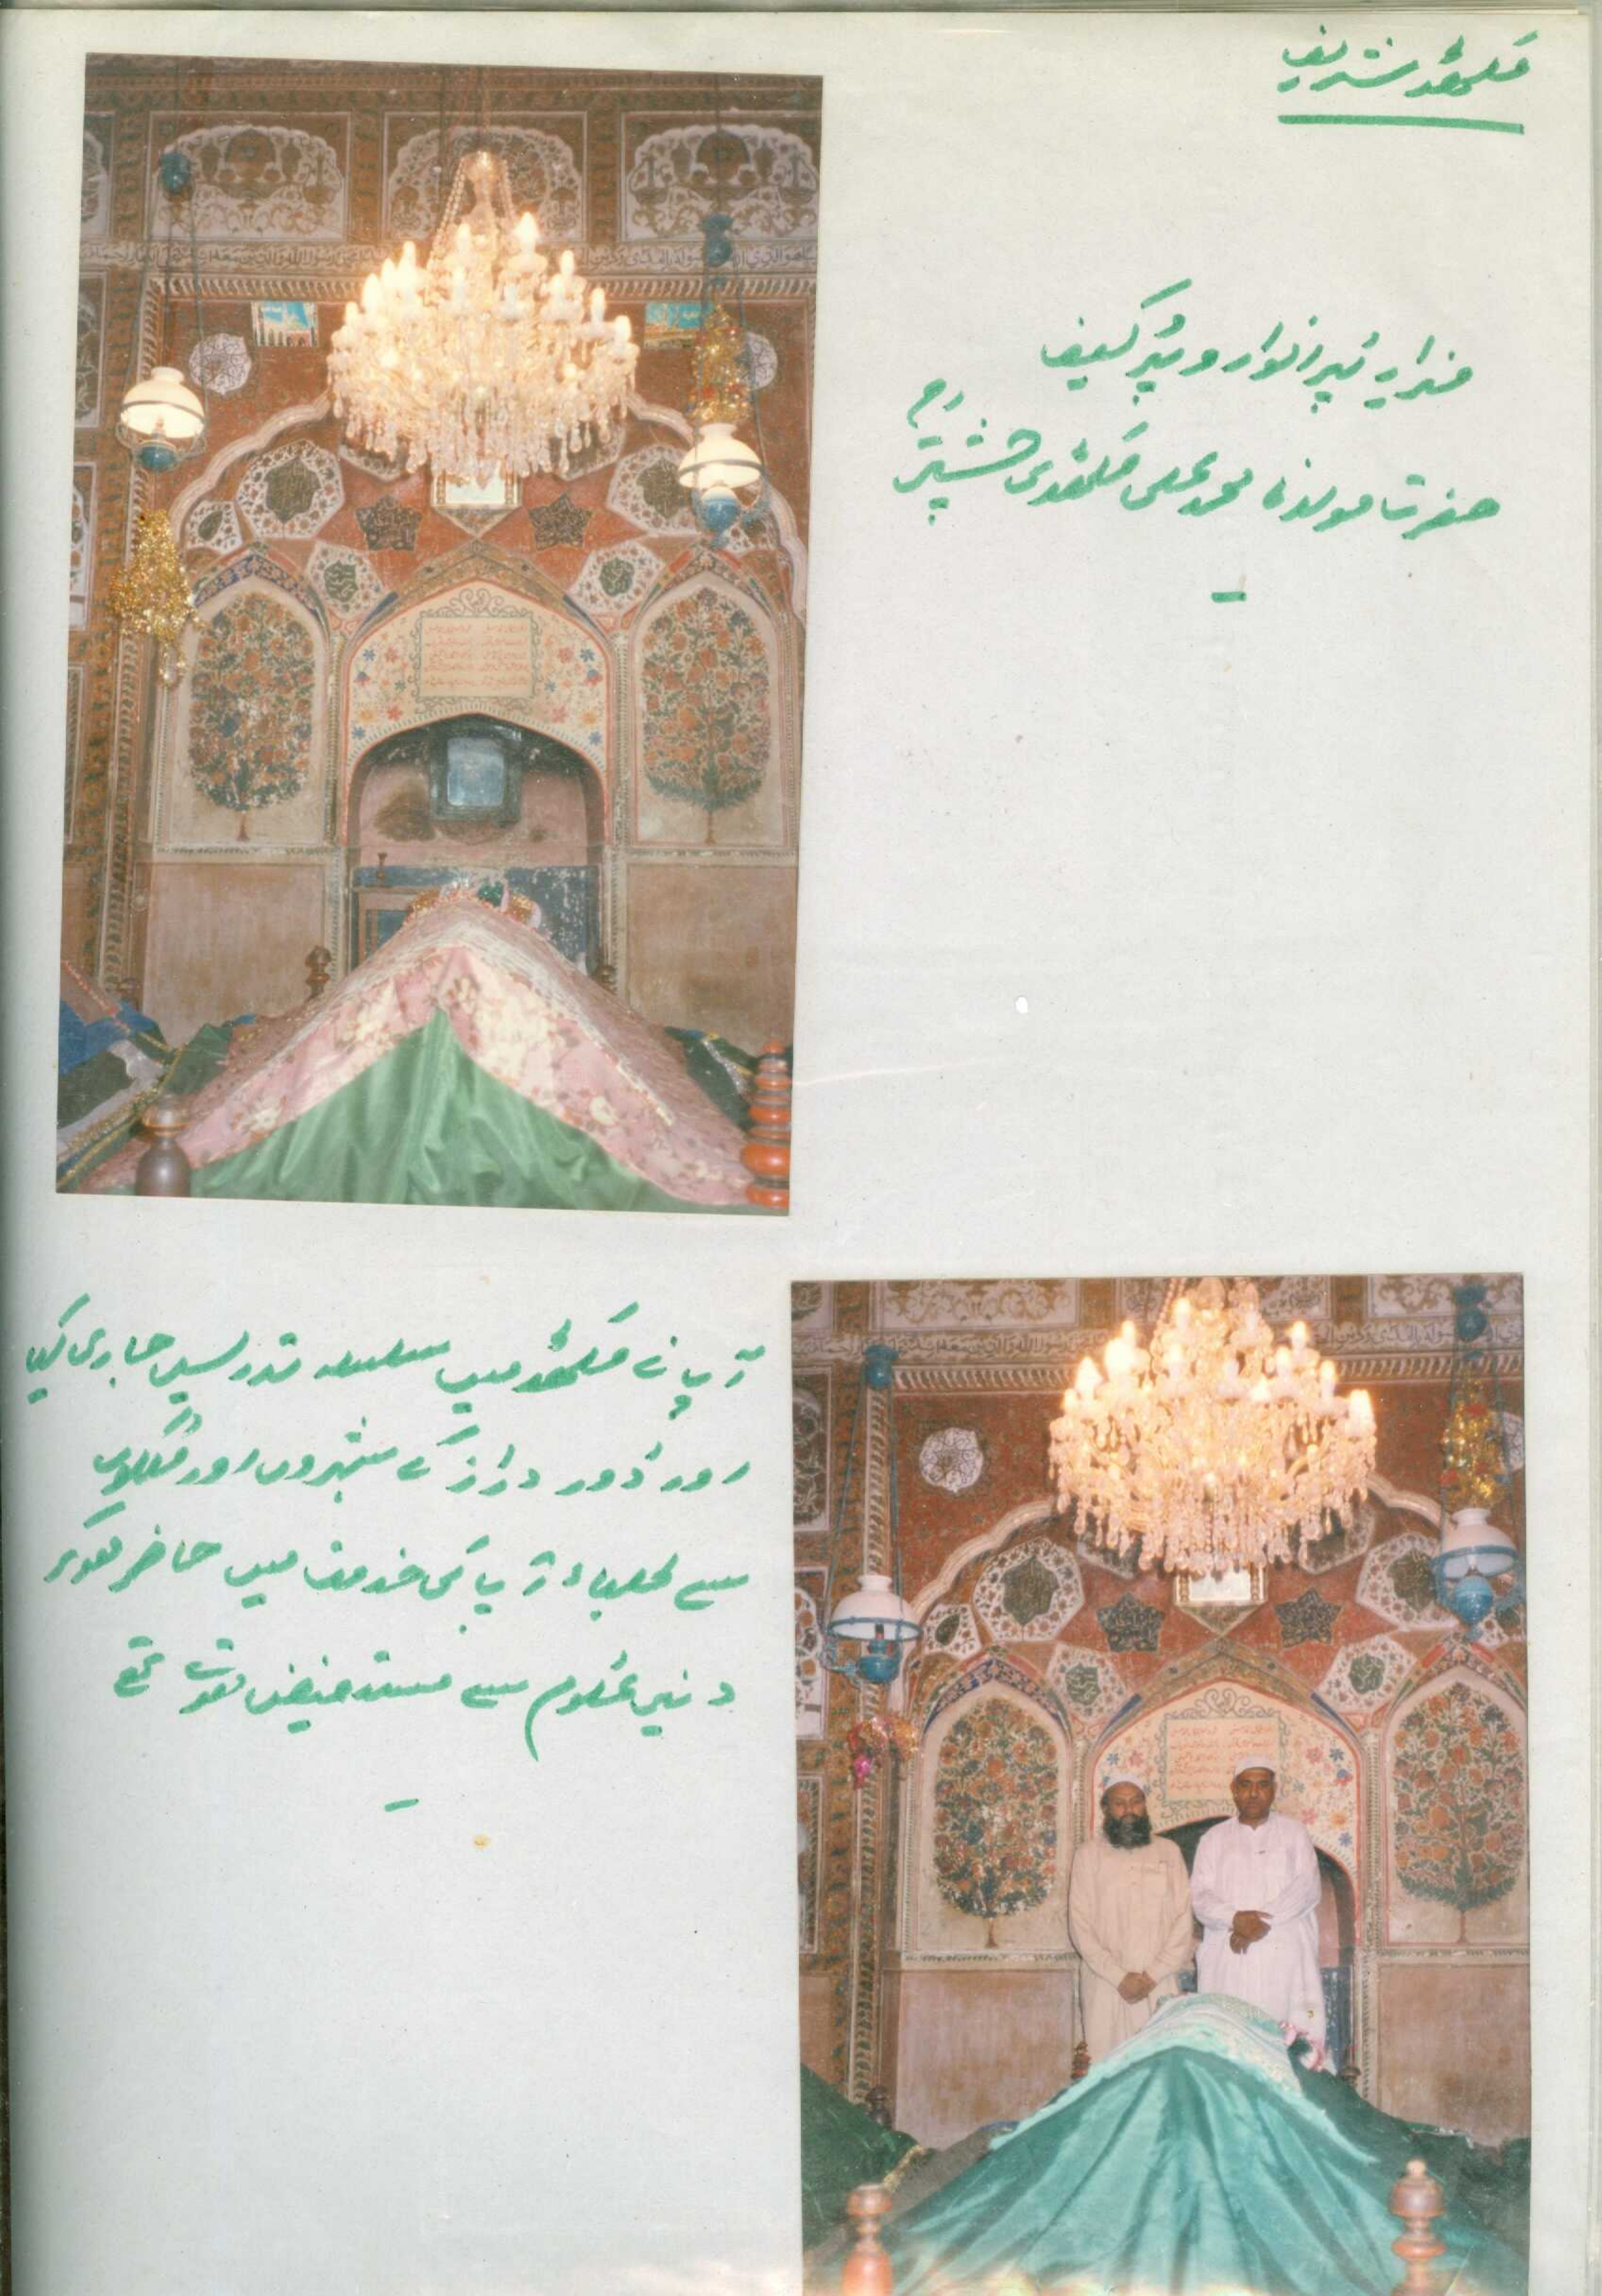 مکھڈ شریف
مزارِ پُر انوار و پُر کیف
حضرت مولانا محمد علی مکھڈی چشتی رح
آپ نے مکھڈ میں سلسلہ تدریس جاری کیا
اور دُور دراز کے شہروں اور مُلکوں
سے طلباء آپ کی خدمت میں حاضر ہوکر
دینی علوم سے مستفیض ہوتے تھے